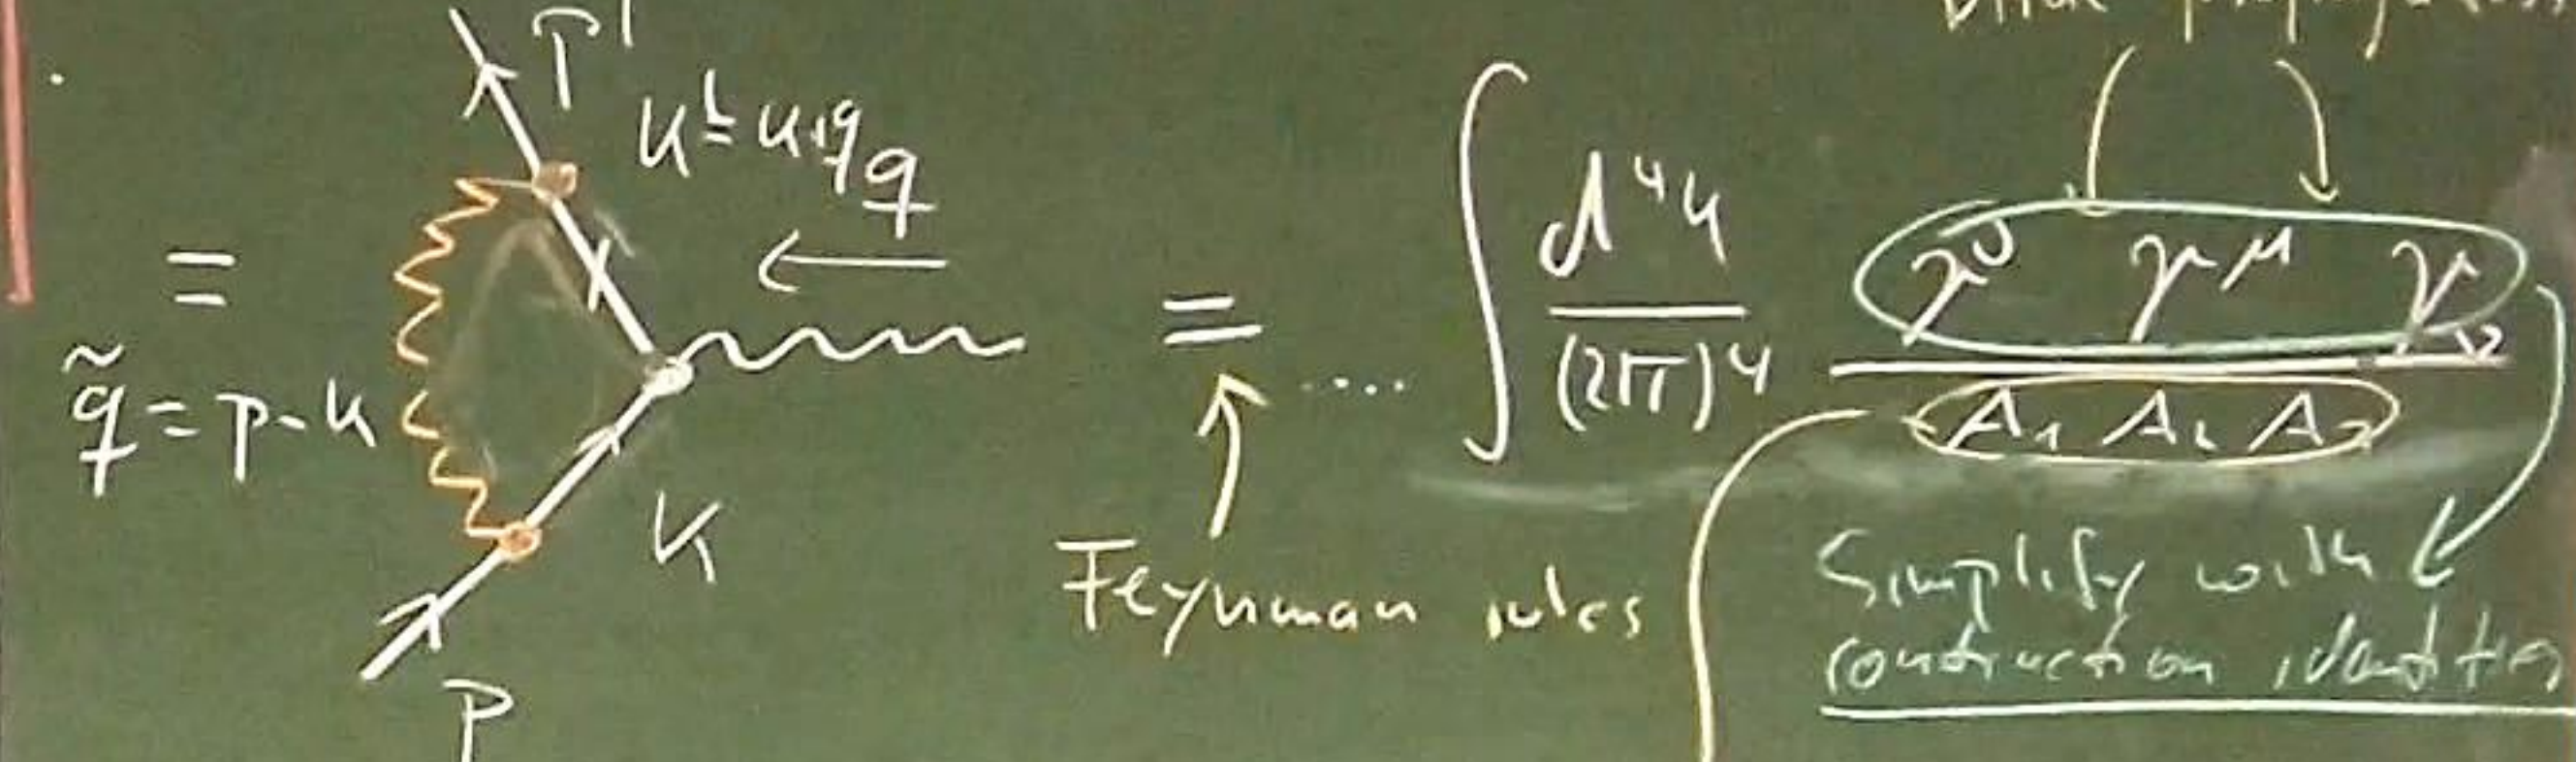 p'
k' = k+q
q
=
q̃ = p-k
k
p
= .... ∫ d⁴k / (2π)⁴ γ^ν γ^μ γ_ν / A₁ A₂ A₃
Feynman rules
Simplify with
contraction identities